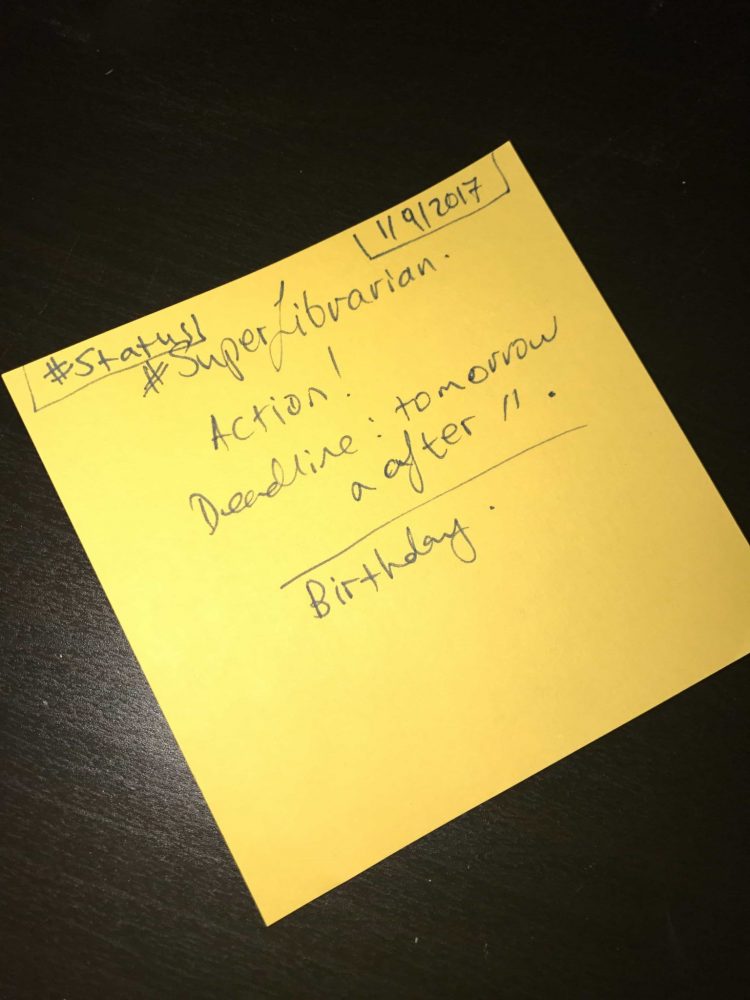 1/9/2017
#Status
#SuperLibrarian.
Action!
Deadline: tomorrow
a after 11.
Birthday.